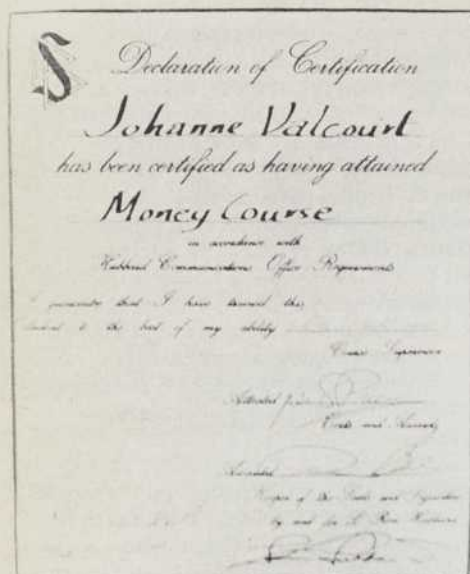 Declaration of Certification
Johanne Valcourt
has been certified as having attained
Money Course
in accordance with
Hubbard Communications Office Requirements
I guarantee that I have trained this
student to the best of my ability
Course Supervisor
Attested
Certs and Awards
Attested
Keeper of the Seals and Signature
by and for L. Ron Hubbard